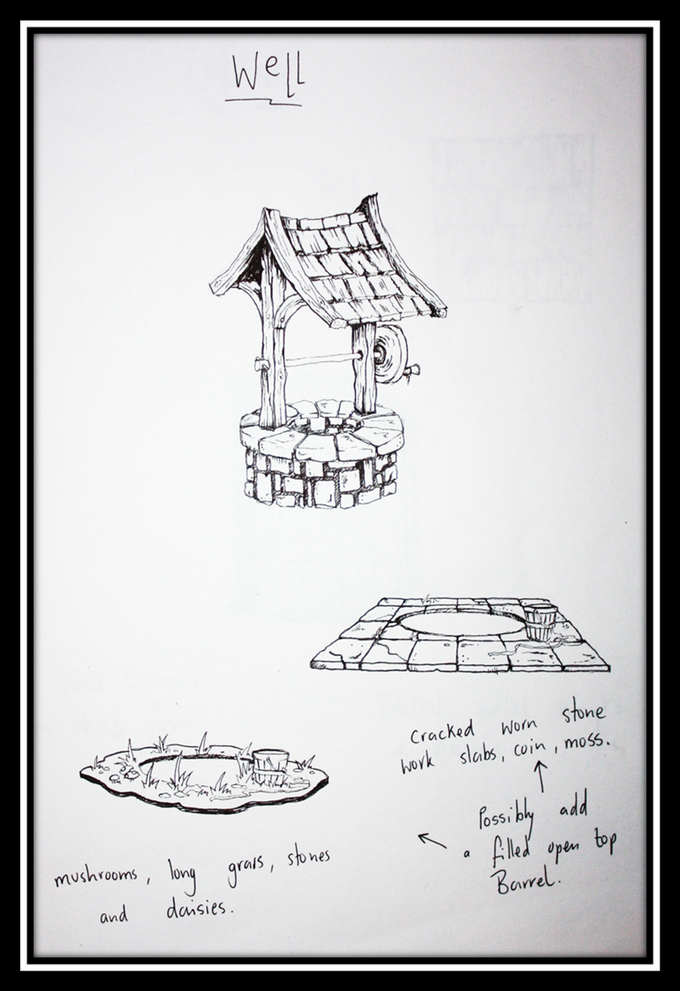 Well
Cracked worn stone
work slabs, coin, moss.
Possibly add
a filled open top
Barrel.
mushrooms, long grass, stones
and daisies.